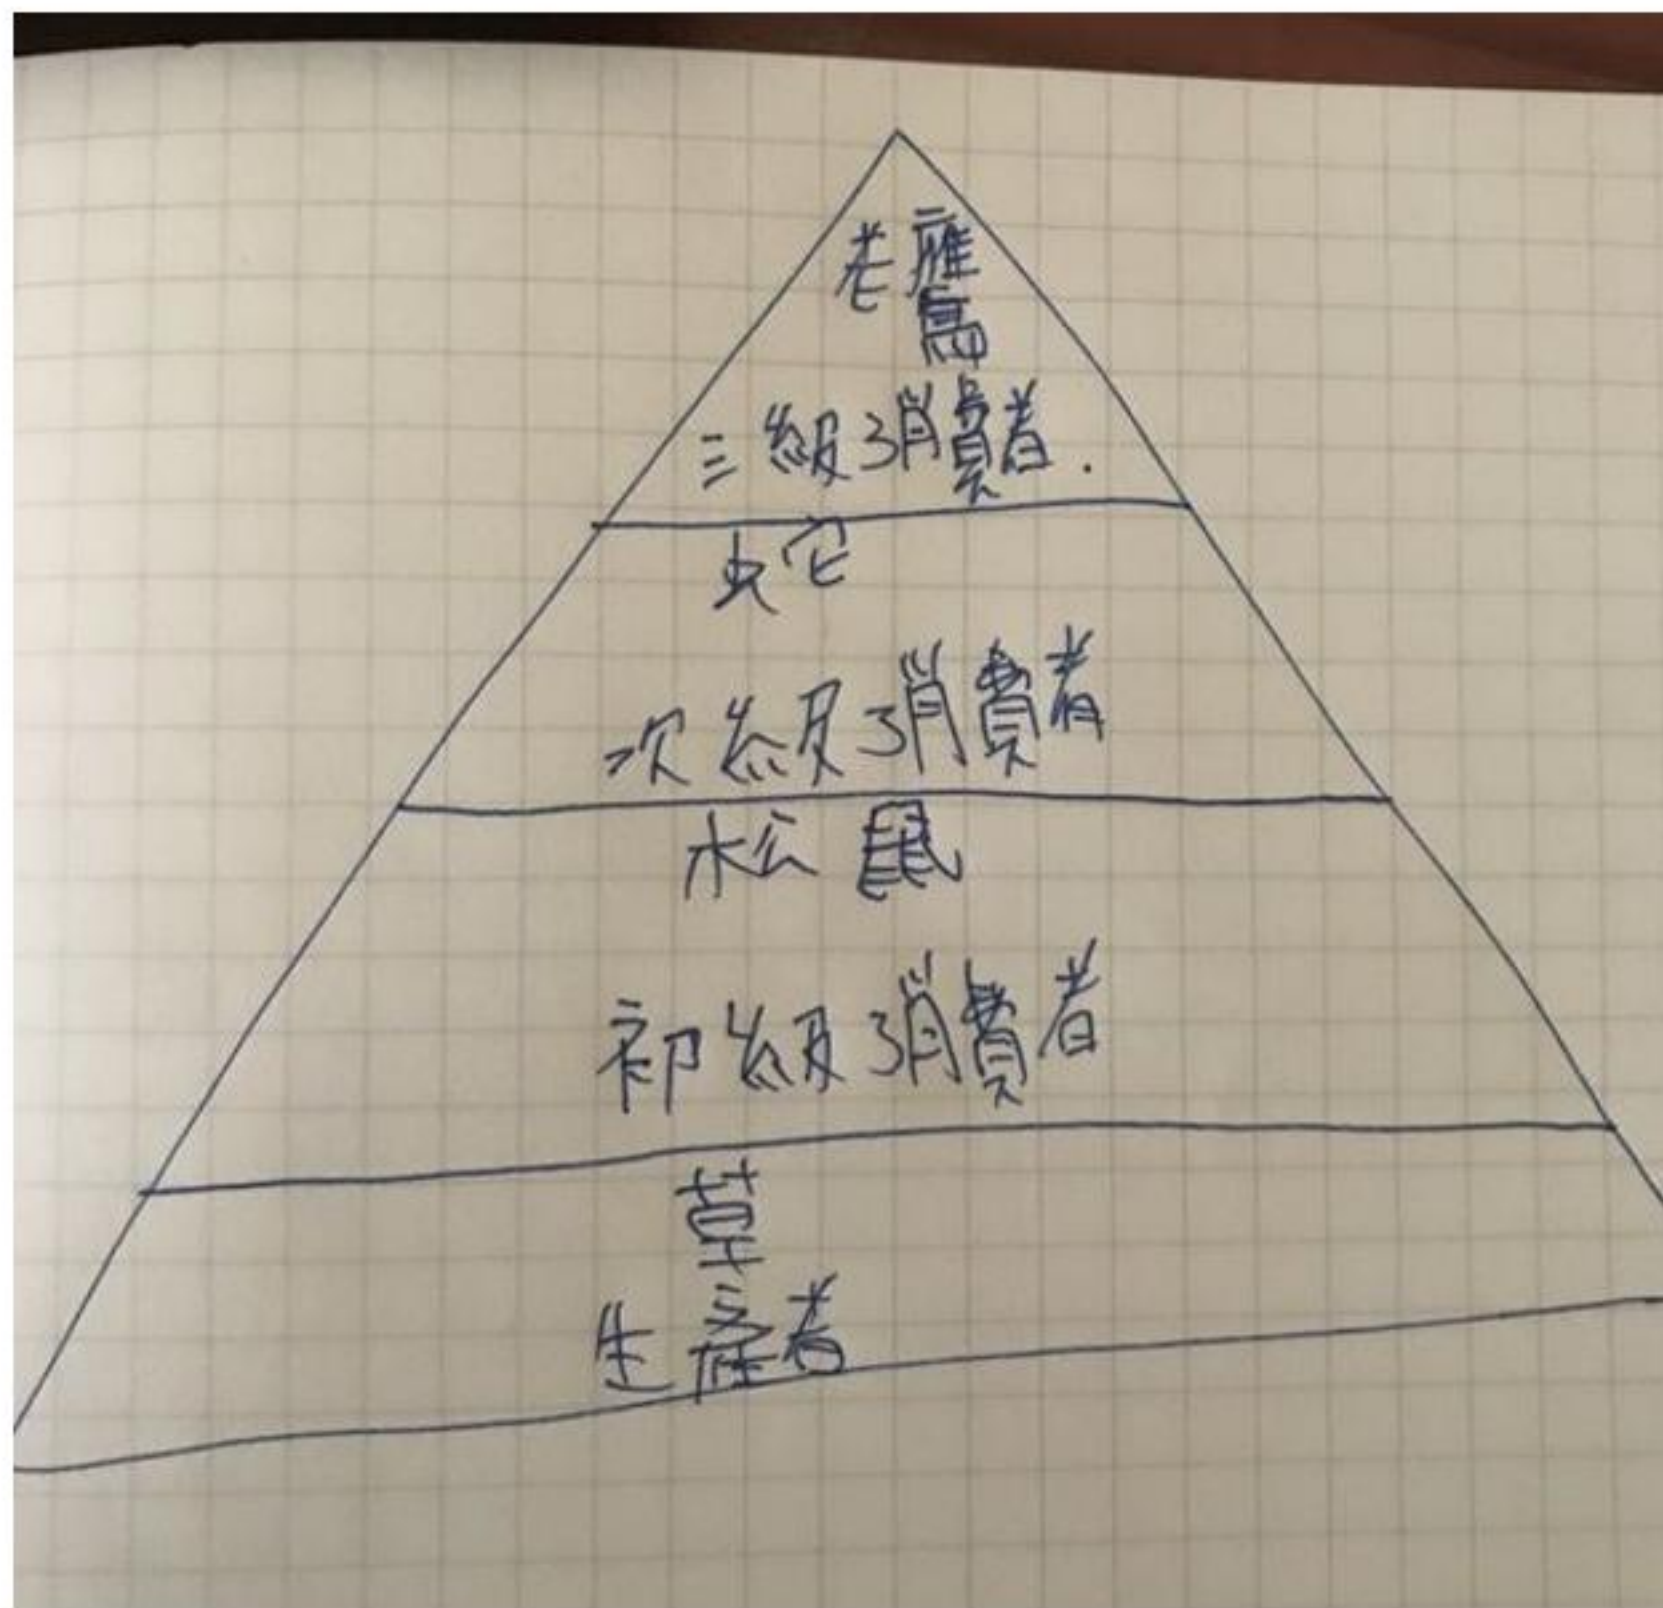 老鷹
三級消費者.
蛇
次級消費者
松鼠
初級消費者
草
生產者